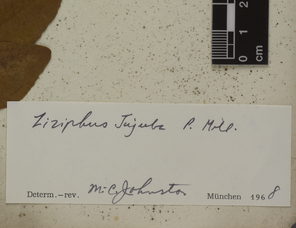 0 1 2
cm
Ziziphus Jujuba P. Mill.
Determ.—rev. M.C. Johnston München 1968